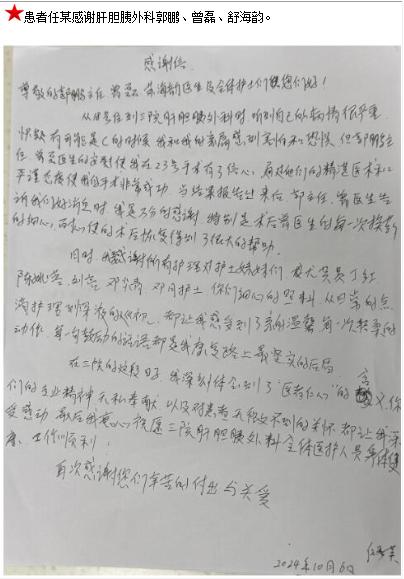 ★患者任某感谢肝胆胰外科郭鹏、曾磊、舒海韵。
感谢信
尊敬的郭鹏主任 曾磊 舒海韵医生及全体护士们 您们好！
从 住到三院肝胆胰外科时，听到自己的病情很严重
有可能是 的时候 我和我的家属感到 和恐惧 但郭鹏主
任、曾磊医生的 使我在23号手术有了信心，用他们的精湛医术和
严谨 使我的手术非常成功，当结果报告过来后 郭主任、曾医生告
诉我们 时 我是万分的感谢 特别是术后曾医生的每一次换药
的细心， 使的术后恢复得到了很大的帮助。
同时，我感谢所有护理 护士妹妹们
陈 邓 邓 护士 你们细心的照料，从日常的点
滴护理到 ，都让我感受到了家的温馨 每一次轻柔的
动作，每一句鼓励的话语都是我康复路上最坚实的后盾。
在三院的这段日子，我深刻体会到了“医者仁心”的含义，你
们的专业精神 无私奉献 以及对患者无微不至的关怀 都让我深
受感动 最后我衷心祝愿三院肝胆胰外科全体医护人员身体健
康、工作顺利！
再次感谢您们辛苦的付出与关爱
任
2024年10月6日